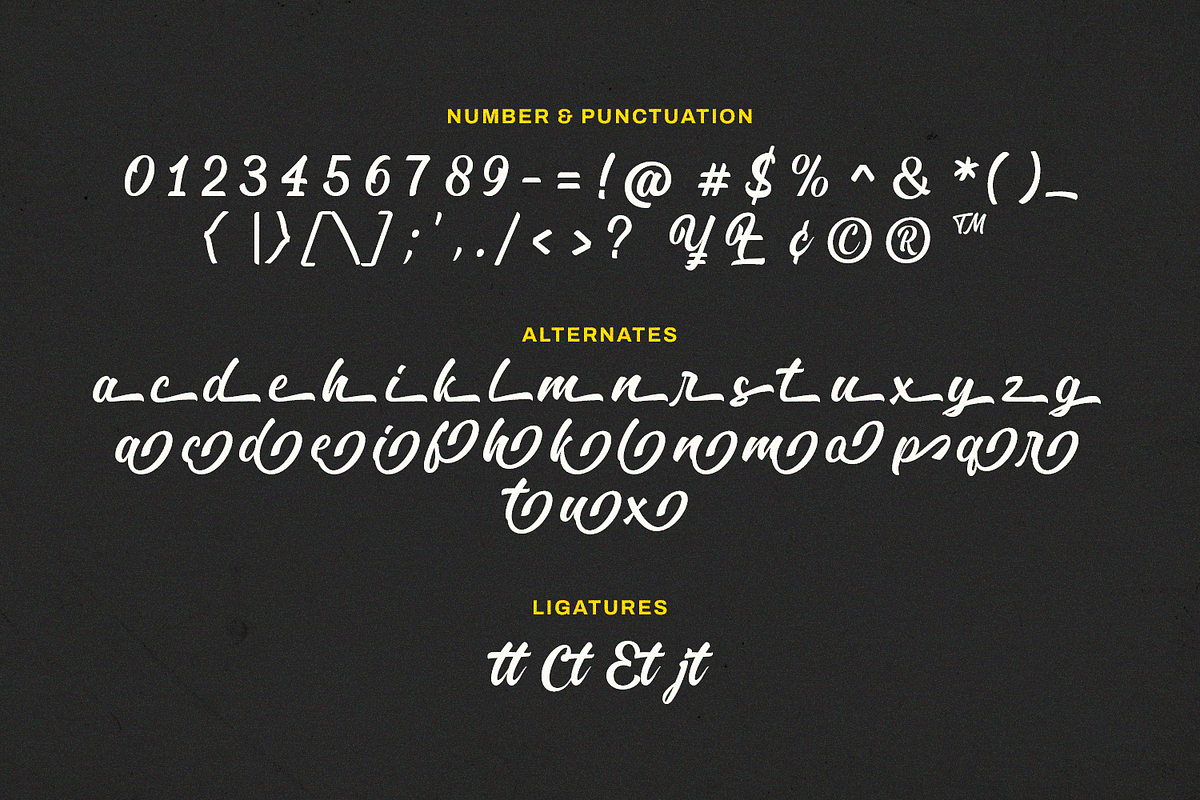 NUMBER & PUNCTUATION
0 1 2 3 4 5 6 7 8 9 - = ! @ # $ % ^ & * ( ) _
{ | } [ \ ] ; ' , . / < > ? ¥ £ ¢ © ® ™
ALTERNATES
a c d e h i k l m n r s t u x y z g
a c d e i f h k l n m o p s q r
t u x
LIGATURES
tt Ct Et jt